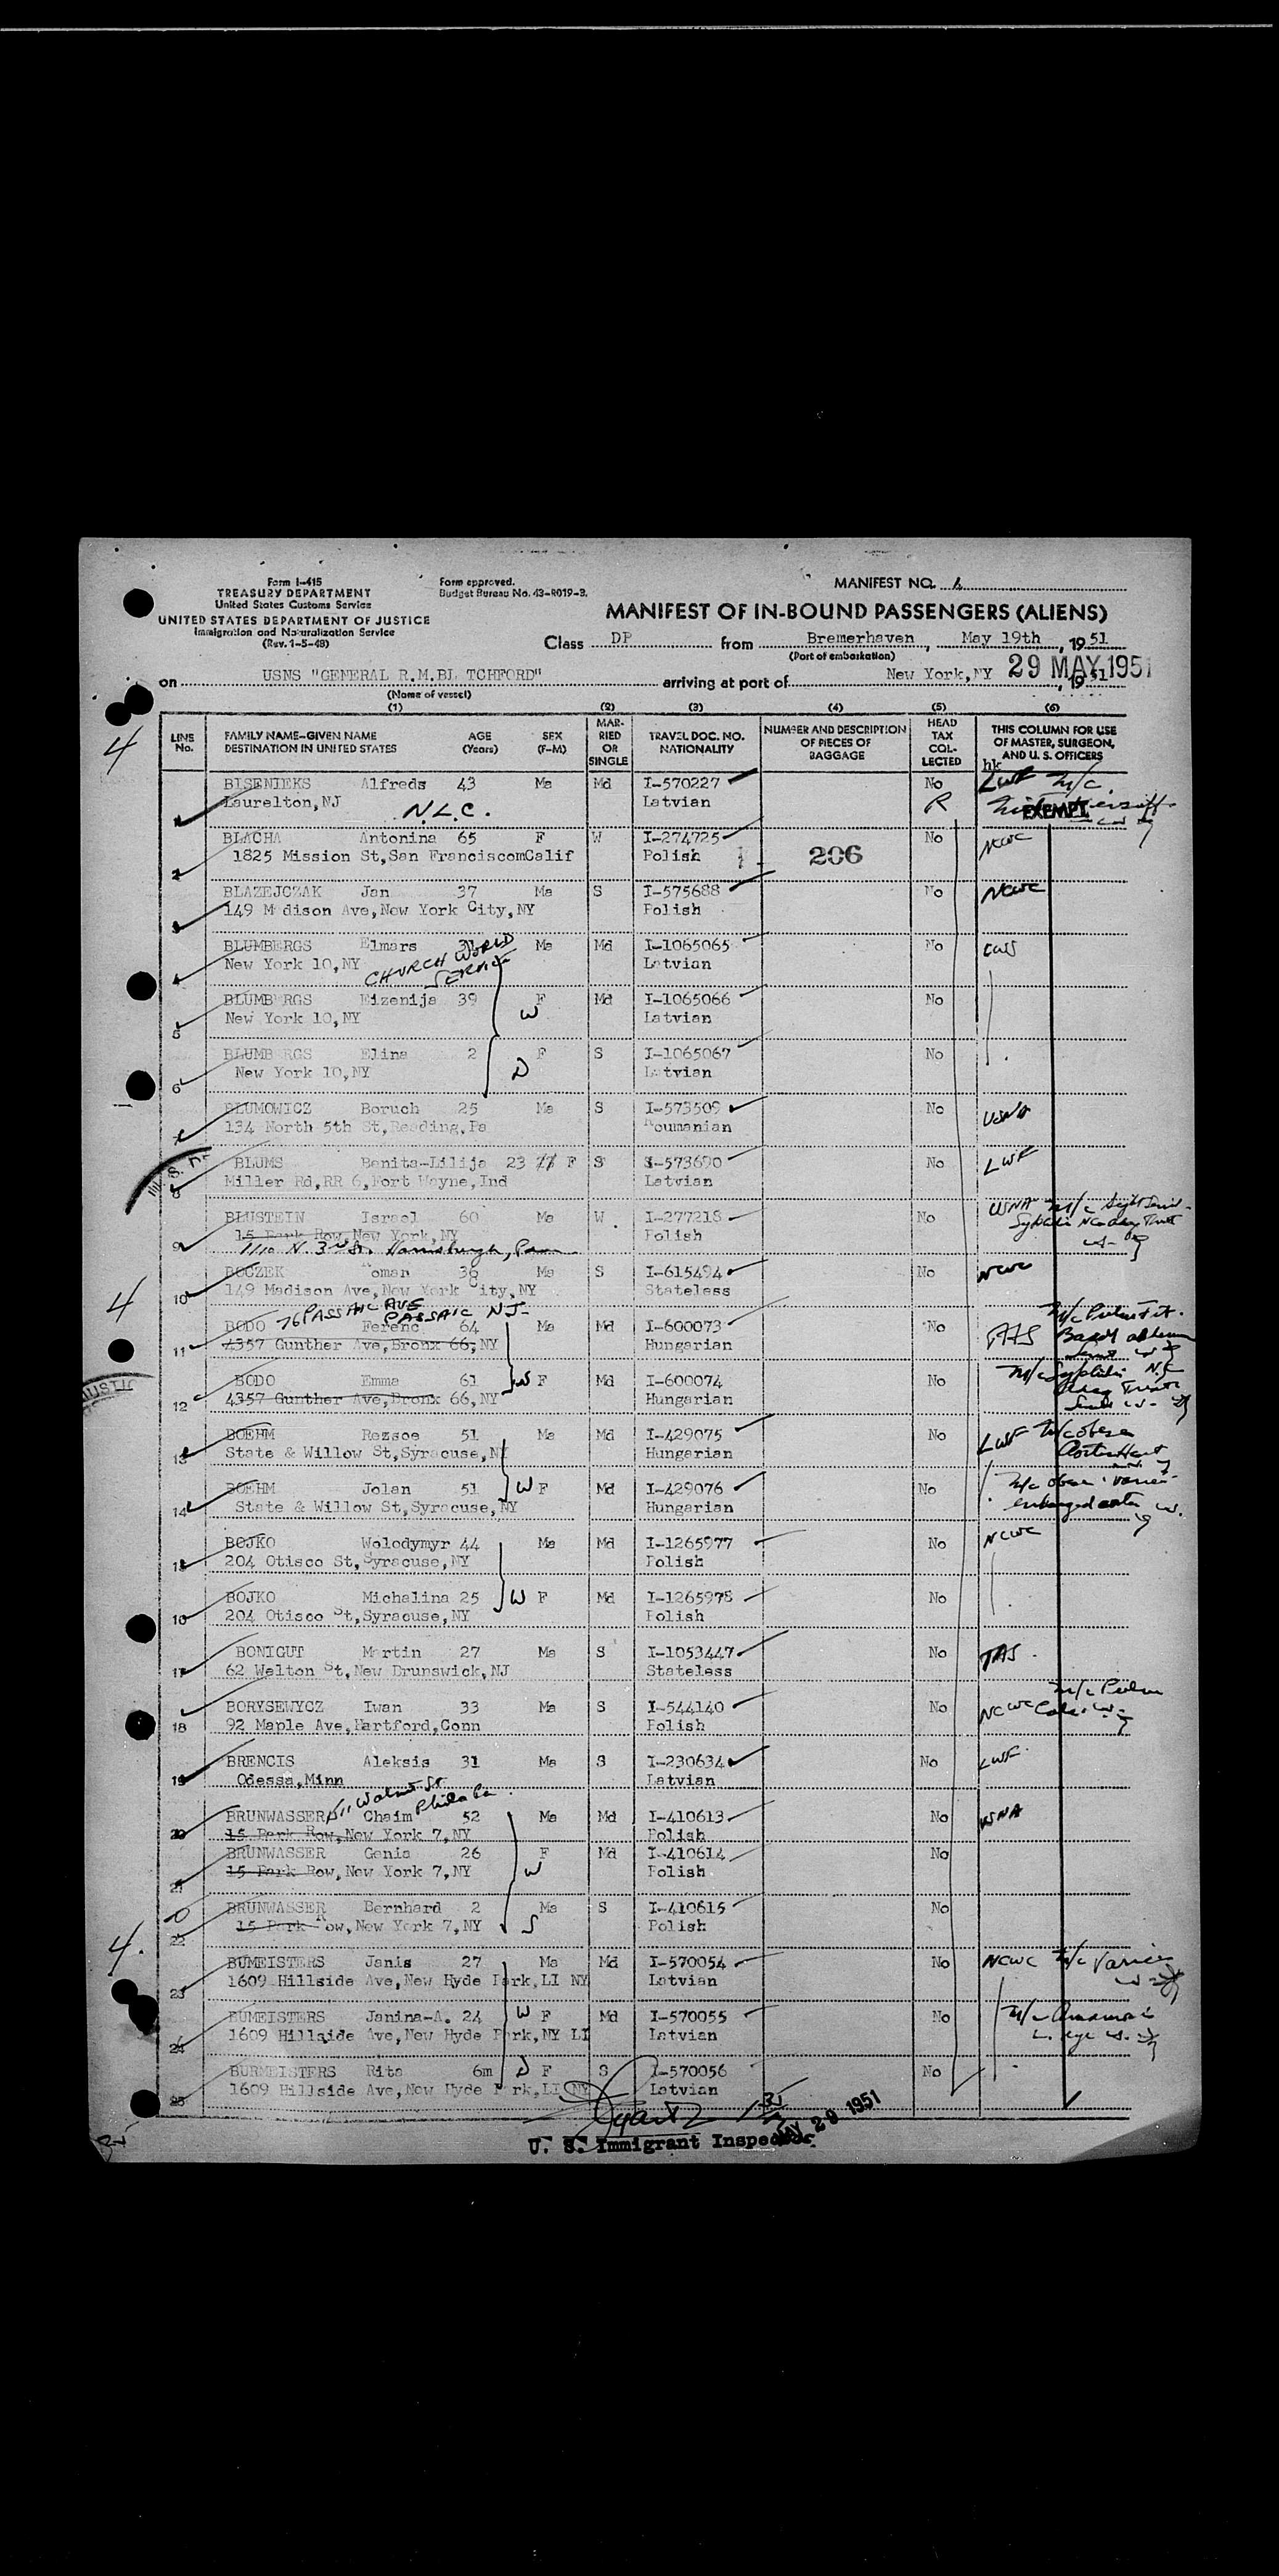 Form I-415
TREASURY DEPARTMENT
United States Customs Service
UNITED STATES DEPARTMENT OF JUSTICE
Immigration and Naturalization Service
(Rev. 1-5-49)
Form approved.
Budget Bureau No. 43-R019-3.
MANIFEST NO. 4
MANIFEST OF IN-BOUND PASSENGERS (ALIENS)
Class DP from Bremerhaven, May 19th, 1951
(Port of embarkation)
on USNS "GENERAL R.M.BL TCHFORD" arriving at port of New York,NY 29 MAY 1951, 1951
(Name of vessel)
(1) (2) (3) (4) (5) (6)
LINE No. FAMILY NAME-GIVEN NAME DESTINATION IN UNITED STATES AGE (Years) SEX (F-M) MAR-RIED OR SINGLE TRAVEL DOC. NO. NATIONALITY NUMBER AND DESCRIPTION OF PIECES OF BAGGAGE HEAD TAX COL-LECTED THIS COLUMN FOR USE OF MASTER, SURGEON, AND U. S. OFFICERS
hk
BISENIEKS Alfreds 43 Ma Md I-570227 No LWF m/c
1 Laurelton,NJ N.L.C. Latvian R EXEMPT
BLACHA Antonina 65 F W I-274725 No NCWC
2 1825 Mission St,San FranciscomCalif Polish 206
BLAZEJCZAK Jan 37 Ma S I-575688 No NCWC
3 149 M dison Ave,New York City,NY Polish
BLUMBERGS Elmars Ma Md I-1065065 No CWS
4 New York 10,NY CHURCH WORLD SERVICE Latvian
BLUMBERGS Eizenija 39 F Md I-1065066 No
5 New York 10,NY W Latvian
BLUMB RGS Elina 2 F S I-1065067 No
6 New York 10,NY D Latvian
BLUMOWICZ Boruch 25 Ma S I-573509 No USNA
7 134 North 5th St,Reading,Pa Roumanian
BLUMS Benita-Lilija 23 F S I-573690 No LWF
8 Miller Rd,RR 6,Fort Wayne,Ind Latvian
BLUSTEIN Israel 60 Ma W I-277218 No USNA m/c
15 Park Row,New York,NY Polish
9 1110 N. 3rd St. Harrisburgh, Penn
BOCZEK Roman 38 Ma S I-615494 No NCWC
10 149 Madison Ave,New York City,NY Stateless
76 PASSAIC AVE PASSAIC NJ-
BODO Ferenc 64 Ma Md I-600073 No m/c
11 4357 Gunther Ave,Bronx 66,NY Hungarian
BODO Emma 61 W F Md I-600074 No m/c
12 4357 Gunther Ave,Bronx 66,NY Hungarian
BOEHM Rezsoe 51 Ma Md I-429075 No LWF m/c obese
13 State & Willow St,Syracuse,NY Hungarian
BOEHM Jolan 51 W F Md I-429076 No m/c obese
14 State & Willow St,Syracuse,NY Hungarian
BOJKO Wolodymyr 44 Ma Md I-1265977 No NCWC
15 204 Otisco St,Syracuse,NY Polish
BOJKO Michalina 25 W F Md I-1265978 No
16 204 Otisco St,Syracuse,NY Polish
BONIGUT Martin 27 Ma S I-1053447 No
17 62 Welton St,New Drunswick,NJ Stateless
BORYSEWYCZ Iwan 33 Ma S I-544140 No NCWC m/c
18 92 Maple Ave,Hartford,Conn Polish
BRENCIS Aleksis 31 Ma S I-230634 No LWF
19 Odessa,Minn Latvian
511 Walnut St Phila Pa.
BRUNWASSER Chaim 52 Ma Md I-410613 No USNA
20 15 Park Row,New York 7,NY Polish
BRUNWASSER Genia 26 F Md I-410614 No
21 15 Park Row,New York 7,NY W Polish
BRUNWASSER Bernhard 2 Ma S I-410615 No
22 15 Park Row,New York 7,NY S Polish
BUMEISTERS Janis 27 Ma Md I-570054 No NCWC m/c
23 1609 Hillside Ave,New Hyde Park,LI NY Latvian
BUMEISTERS Janina-A. 24 W F Md I-570055 No m/c
24 1609 Hillside Ave,New Hyde Park,NY LI Latvian
BURMEISTERS Rita 6m D F S I-570056 No
25 1609 Hillside Ave,New Hyde P rk,LI NY Latvian
MAY 29 1951
U. S. Immigrant Inspector